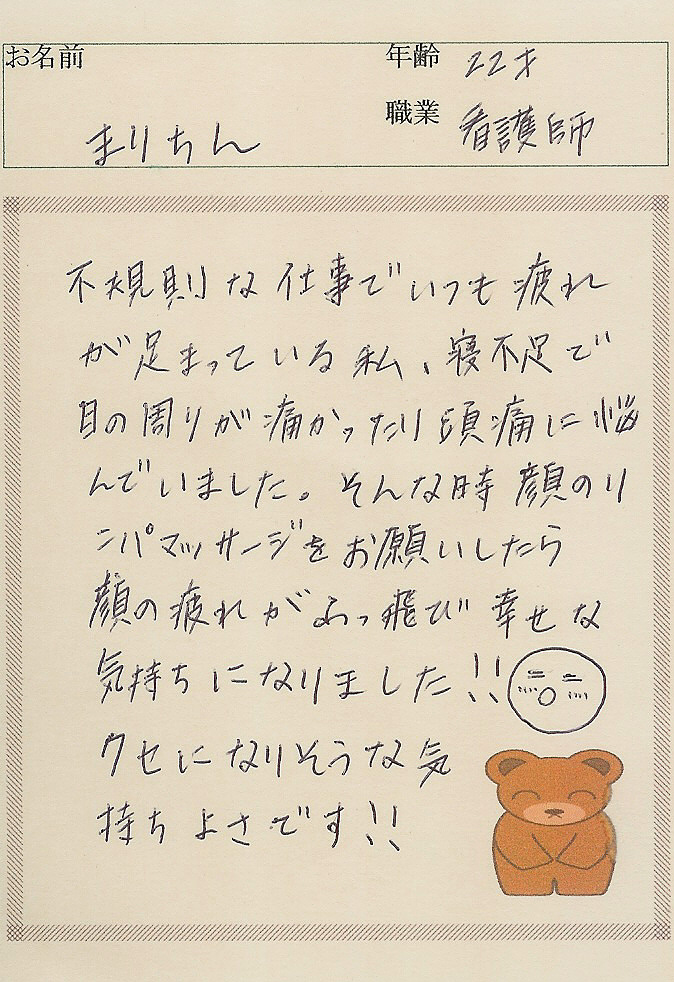 お名前
まりちん
年齢 22才
職業 看護師
不規則な仕事でいつも疲れ
が足まっている私、寝不足で
目の周りが痛かったり頭痛に悩
んでいました。そんな時顔のリ
ンパマッサージをお願いしたら
顔の疲れがふっ飛び幸せな
気持ちになりました!!
クセになりそうな気
持ちよさです!!